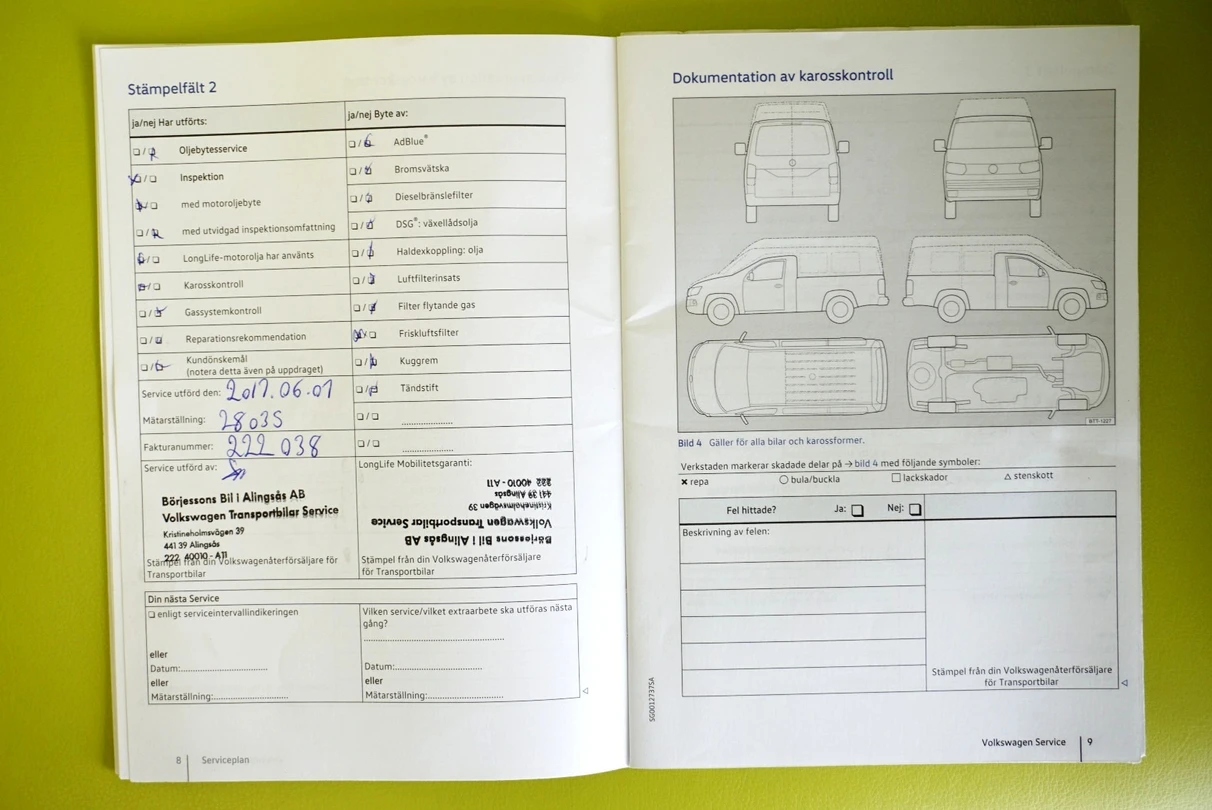 Stämpelfält 2
ja/nej Har utförts:
❏ / ❏ Oljebytesservice
❏ / ❏ Inspektion
❏ / ❏ med motoroljebyte
❏ / ❏ med utvidgad inspektionsomfattning
❏ / ❏ LongLife-motorolja har använts
❏ / ❏ Karosskontroll
❏ / ❏ Gassystemkontroll
❏ / ❏ Reparationsrekommendation
❏ / ❏ Kundönskemål
(notera detta även på uppdraget)
Service utförd den: 2017.06.01
Mätarställning: 28035
Fakturanummer: 222 038
Service utförd av:
Börjessons Bil i Alingsås AB
Volkswagen Transportbilar Service
Kristineholmsvägen 39
441 39 Alingsås
222 40010 - A11
Stämpel från din Volkswagenåterförsäljare för
Transportbilar
ja/nej Byte av:
❏ / ❏ AdBlue®
❏ / ❏ Bromsvätska
❏ / ❏ Dieselbränslefilter
❏ / ❏ DSG®: växellådsolja
❏ / ❏ Haldexkoppling: olja
❏ / ❏ Luftfilterinsats
❏ / ❏ Filter flytande gas
❏ / ❏ Friskluftsfilter
❏ / ❏ Kuggrem
❏ / ❏ Tändstift
❏ / ❏ ......................
❏ / ❏ ......................
LongLife Mobilitetsgaranti:
Börjessons Bil i Alingsås AB
Volkswagen Transportbilar Service
Kristineholmsvägen 39
441 39 Alingsås
222 40010 - A11
Stämpel från din Volkswagenåterförsäljare
för Transportbilar
Din nästa Service
❏ enligt serviceintervallindikeringen
eller
Datum:..............................
eller
Mätarställning:.........................
Vilken service/vilket extraarbete ska utföras nästa
gång?
................................................
Datum:..............................
eller
Mätarställning:.........................
8 Serviceplan
Dokumentation av karosskontroll
B7T-1227
Bild 4 Gäller för alla bilar och karossformer.
Verkstaden markerar skadade delar på → bild 4 med följande symboler:
✖ repa ○ bula/buckla □ lackskador △ stenskott
Fel hittade? Ja: ❏ Nej: ❏
Beskrivning av felen:
Stämpel från din Volkswagenåterförsäljare
för Transportbilar
SG0012737SA
Volkswagen Service 9